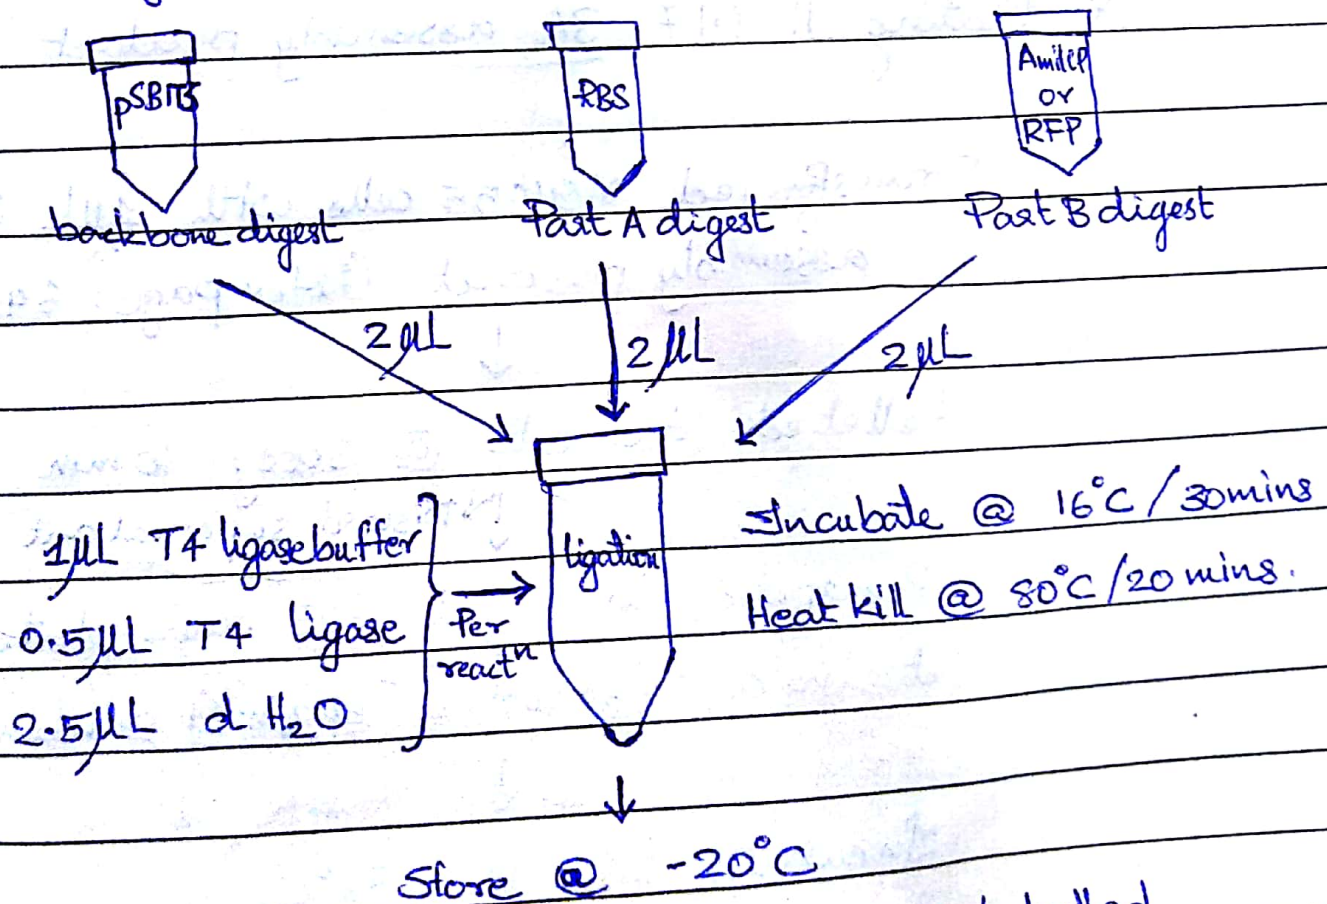 pSB1T3
RBS
AmilCP
or
RFP
backbone digest
Part A digest
Part B digest
2 µL
2 µL
2 µL
1µL T4 ligase buffer
0.5µL T4 ligase
2.5µL d H₂O
Per
reactⁿ
ligation
Incubate @ 16°C / 30mins
Heat kill @ 80°C / 20 mins.
Store @ -20°C